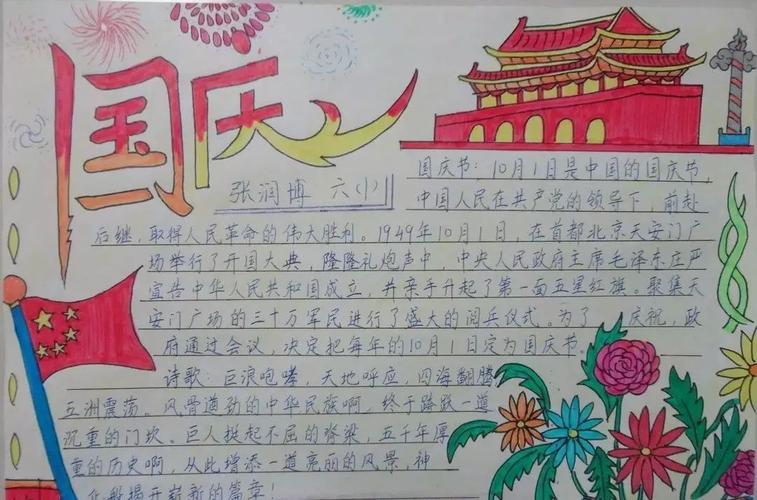 国庆
张润博 六(1)
国庆节:10月1日是中国的国庆节,
中国人民在共产党的领导下,前赴
后继,取得人民革命的伟大胜利。1949年10月1日,在首都北京天安门广
场举行了开国大典,隆隆礼炮声中,中央人民政府主席毛泽东庄严
宣告中华人民共和国成立,并亲手升起了第一面五星红旗。聚集天
安门广场的三十万军民进行了盛大的阅兵仪式。为了 庆祝,政
府通过会议,决定把每年的10月1日定为国庆节。
诗歌:巨浪咆哮,天地呼应,四海翻腾
五洲震荡。风骨遒劲的中华民族啊,终于踏跃一道
沉重的门坎。巨人挺起不屈的脊梁,五千年厚
重的历史啊,从此增添一道亮丽的风景,神
化般揭开崭新的篇章!